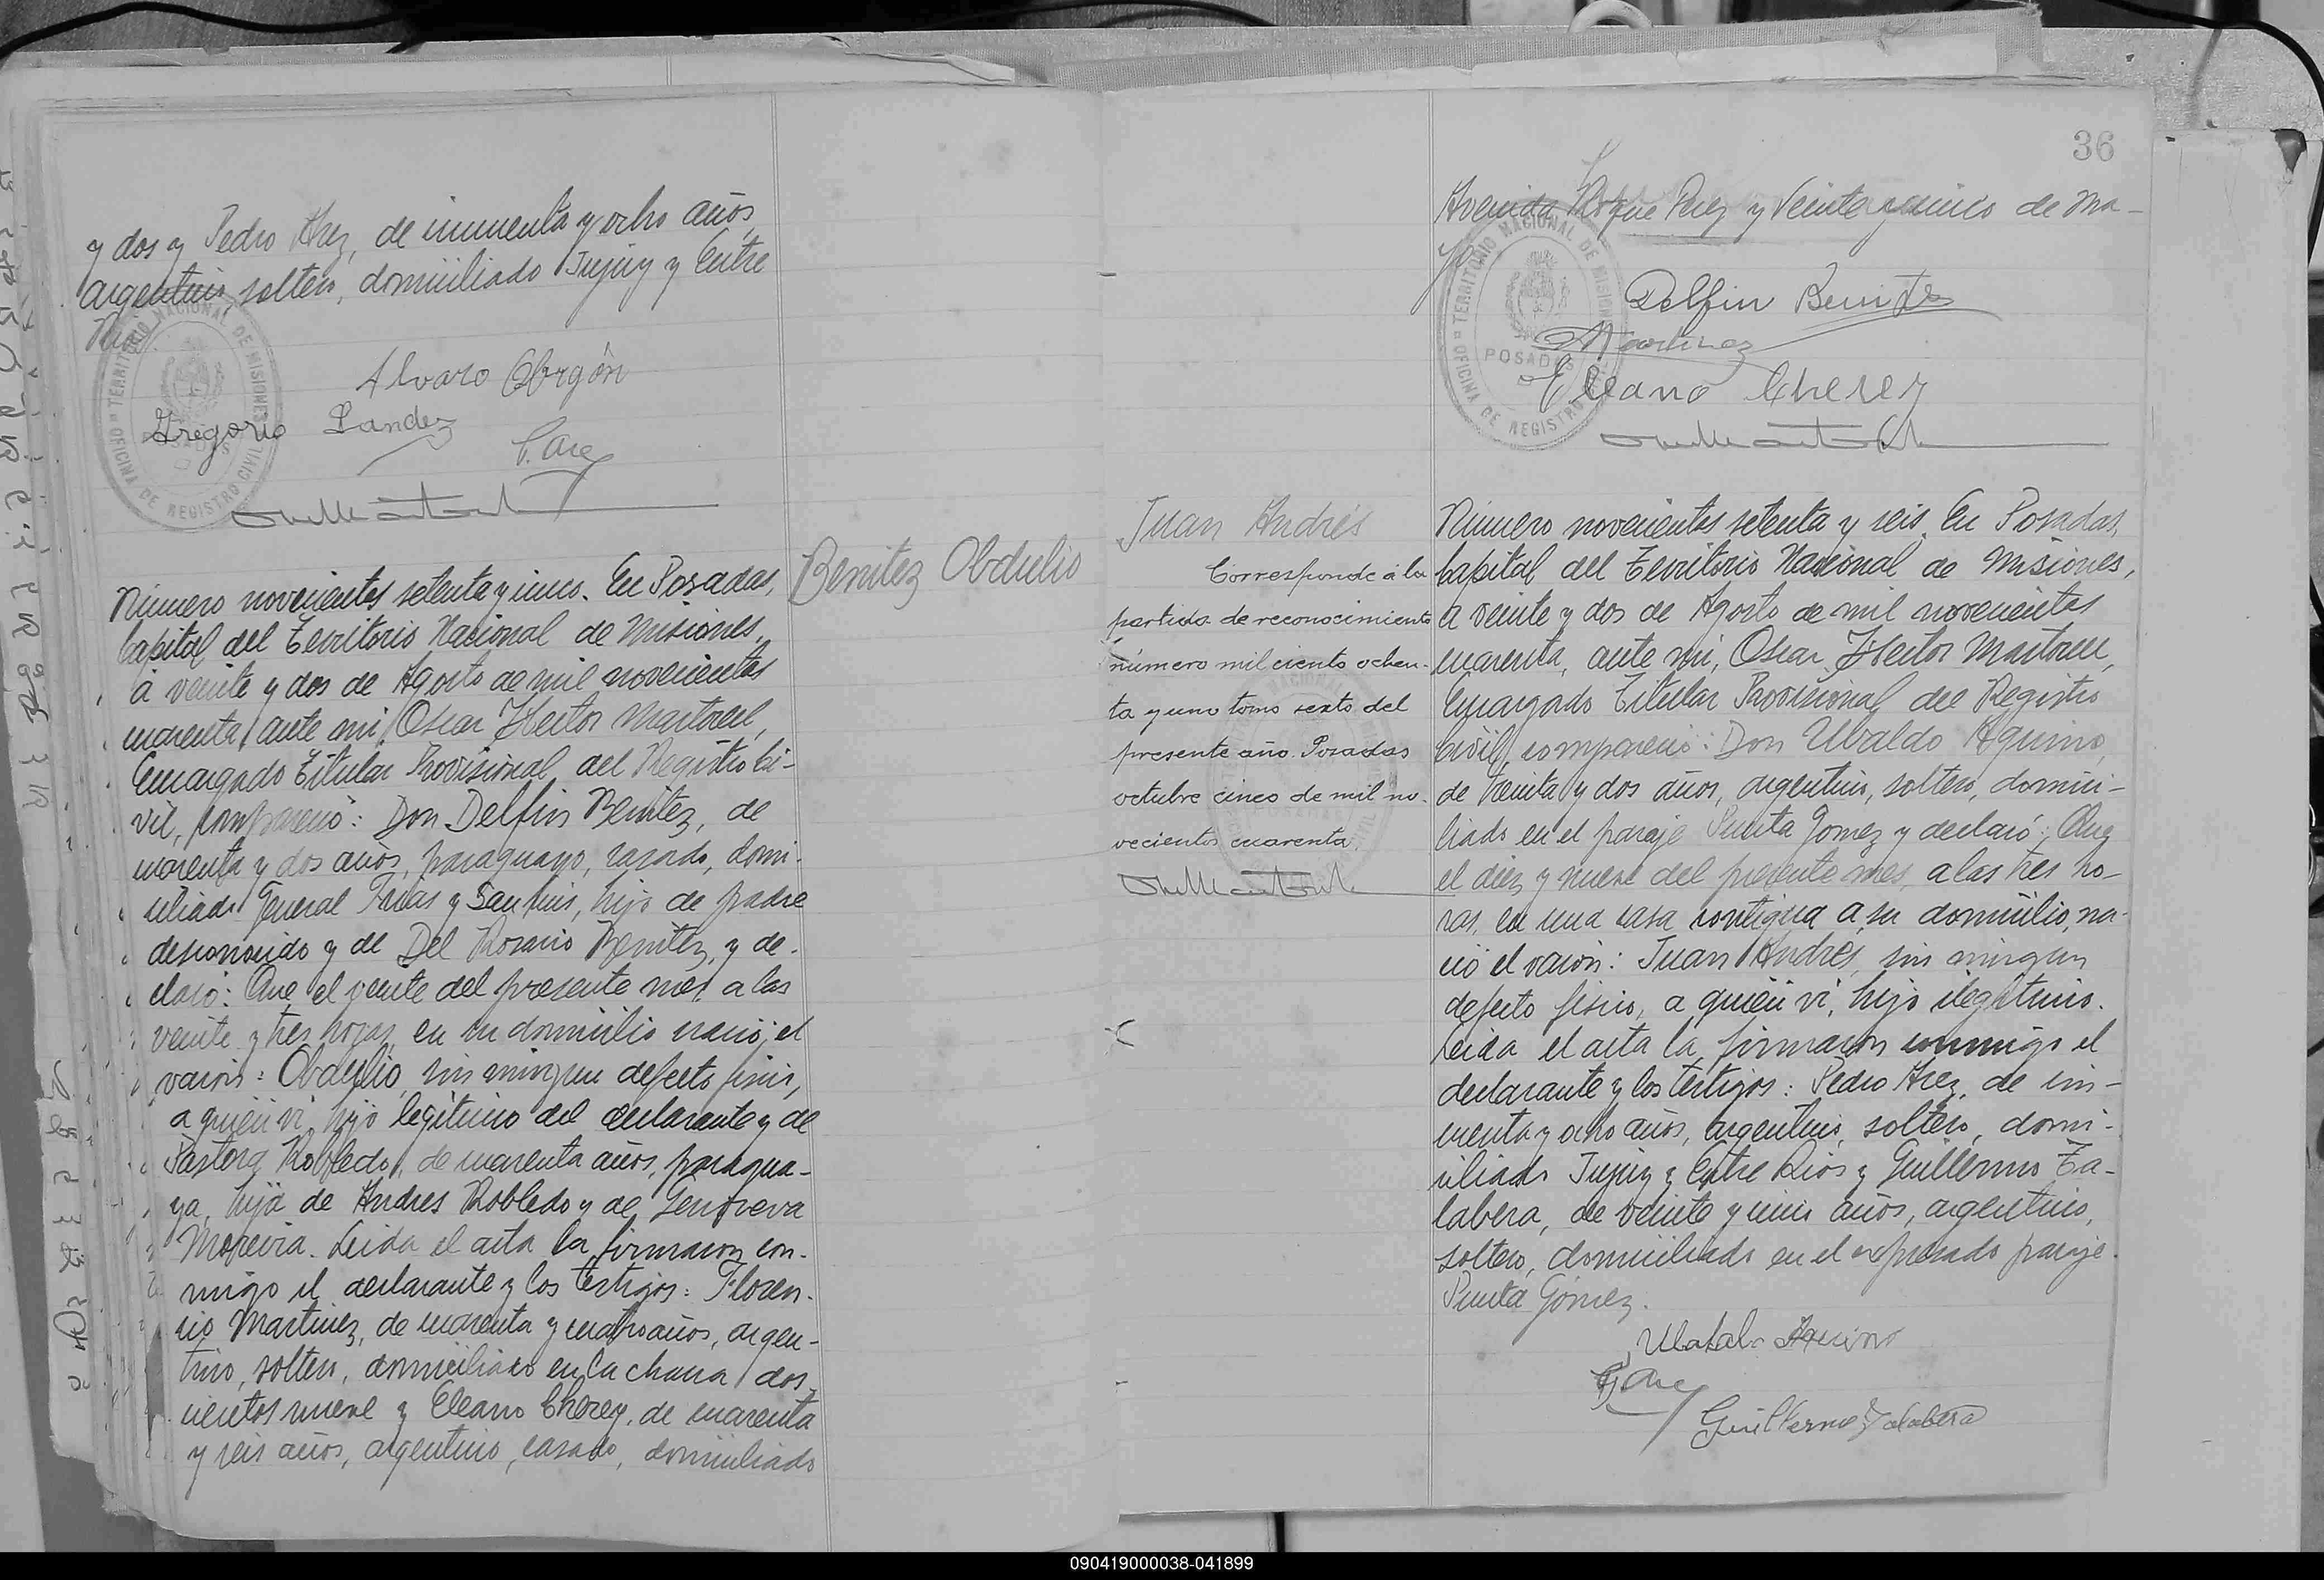 y dos y Pedro Arez, de cincuenta y ocho años,
argentino, soltero, domiciliado Jujuy y Entre
Rios
TERRITORIO NACIONAL DE MISIONES
POSADAS
OFICINA DE REGISTRO CIVIL
Alvaro Obregón
Gregorio Landez
P. Arez
Benitez Obdulio
Número novecientos setenta y cinco. En Posadas,
Capital del Territorio Nacional de Misiones,
a veinte y dos de Agosto de mil novecientos
cuarenta, ante mi, Oscar Hector Martorell,
Encargado Titular Provisional del Registro Ci-
vil, compareció: Don Delfin Benitez, de
cuarenta y dos años, paraguayo, casado, domi-
ciliado General Frias y San Luis, hijo de padre
desconocido y de Del Rosario Benitez, y de-
claró: Que el veinte del presente mes, a las
veinte y tres horas, en su domicilio nació el
varón: Obdulio, sin ningun defecto fisico,
a quien vi, hijo legitimo del declarante y de
Pastora Robledo, de cuarenta años, paragua-
ya, hija de Andres Robledo y de Genoveva
Moreira. Leida el acta la firmaron con-
migo el declarante y los testigos: Floren-
cio Martinez, de cuarenta y cuatro años, argen-
tino, soltero, domiciliado en la chacra dos-
cientos nueve y Eleano Cherey, de cuarenta
y seis años, argentino, casado, domiciliado
36
Avenida Roque Perez y Veinte y cinco de Ma-
yo
TERRITORIO NACIONAL DE MISIONES
POSADAS
OFICINA DE REGISTRO
Delfin Benites
Martinez
Eleano Cherey
Juan Andrés
Corresponde a la
partida de reconocimiento
número mil ciento ochen-
ta y uno tomo sexto del
presente año. Posadas
octubre cinco de mil no-
vecientos cuarenta.
Número novecientos setenta y seis. En Posadas,
Capital del Territorio Nacional de Misiones,
a veinte y dos de Agosto de mil novecientos
cuarenta, ante mi, Oscar Hector Martorell,
Encargado Titular Provisional del Registro
Civil, compareció: Don Ubaldo Aquino,
de treinta y dos años, argentino, soltero, domici-
liado en el paraje Punta Gomez y declaró: Que
el diez y nueve del presente mes, a las tres ho-
ras, en una casa contigua a su domicilio, na-
ció el varón: Juan Andrés, sin ningun
defecto fisico, a quien vi, hijo ilegitimo.
Leida el acta la firmaron conmigo el
declarante y los testigos: Pedro Arez, de cin-
cuenta y ocho años, argentino, soltero, domi-
ciliado Jujuy y Entre Rios y Guillermo Ta-
labera, de veinte y cinco años, argentino,
soltero, domiciliado en el expresado paraje
Punta Gómez.
Ubaldo Aquino
P. Arez
Guillermo Talabera
090419000038-041899